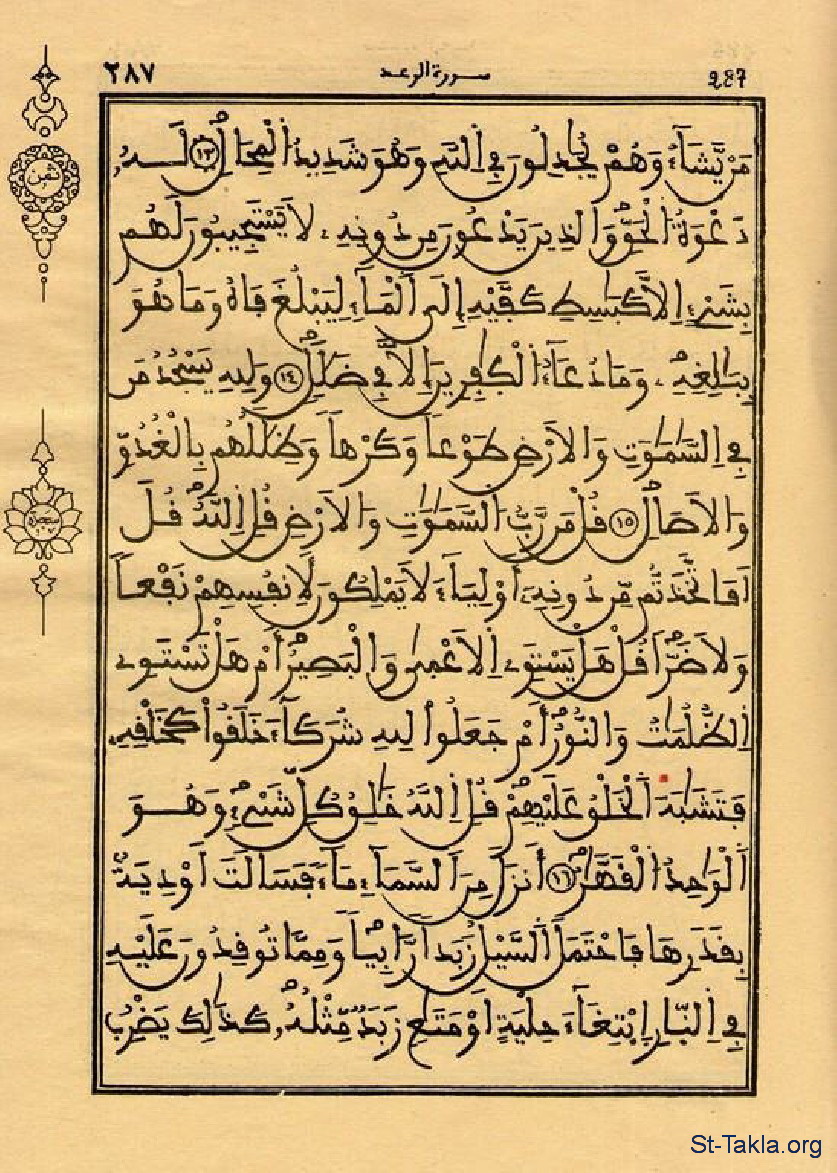 ٢٨٧ سورة الرعد 287
مَنْ يَّشَآءُ وَهُمْ يُجَٰدِلُونَ فِے اِ۬للَّهِ وَهُوَ شَدِيدُ اُ۬لْمِحَالِ ١٣ لَهُۥ
دَعْوَةُ اُ۬لْحَقِّ وَالذِينَ يَدْعُونَ مِن دُونِهِۦ لَا يَسْتَجِيبُونَ لَهُم
بِشَےْءٍ اِلَّا كَبَٰسِطِ كَفَّيْهِ إِلَى اَ۬لْمَآءِ لِيَبْلُغَ فَاهُ وَمَا هُوَ
بِبَٰلِغِهِۦ وَمَا دُعَآءُ اُ۬لْكَٰفِرِينَ إِلَّا فِے ضَلَٰلٍ ١٤ وَلِلهِ يَسْجُدُ مَن
فِے اِ۬لسَّمَٰوَٰتِ وَالَارْضِ طَوْعاً وَكَرْهاً وَظِلَٰلُهُم بِالْغُدُوِّ
وَالَاصَالِ ١٥ قُلْ مَن رَّبُّ اُ۬لسَّمَٰوَٰتِ وَالَارْضِ قُلِ اِ۬للَّهُ قُلَ
اَفَاتَّخَذتُّم مِّن دُونِهِۦٓ أَوْلِيَآءَ لَا يَمْلِكُونَ لِأَنفُسِهِمْ نَفْعاً
وَلَا ضَرّاً قُلْ هَلْ يَسْتَوِے اِ۬لَاعْمَىٰ وَالْبَصِيرُ أَمْ هَلْ تَسْتَوِے
اِ۬لظُّلُمَٰتُ وَالنُّورُ أَمْ جَعَلُواْ لِلهِ شُرَكَآءَ خَلَقُواْ كَخَلْقِهِۦ
فَتَشَٰبَهَ اَ۬لْخَلْقُ عَلَيْهِمْ قُلِ اِ۬للَّهُ خَٰلِقُ كُلِّ شَےْءٍ وَهُوَ
اَ۬لْوَٰحِدُ اُ۬لْقَهَّٰرُ ١٦ أَنزَلَ مِنَ اَ۬لسَّمَآءِ مَآءً فَسَالَتَ اَوْدِيَةٌ
بِقَدَرِهَا فَاحْتَمَلَ اَ۬لسَّيْلُ زَبَداً رَّابِياً وَمِمَّا تُوقِدُونَ عَلَيْهِ
فِے اِ۬لنّ۪ارِ اِ۪بْتِغَآءَ حِلْيَةٍ اَوْ مَتَٰعٍ زَبَدٌ مِّثْلُهُۥ كَذَٰلِكَ يَضْرِبُ
ثمن
سجدة
St-Takla.org